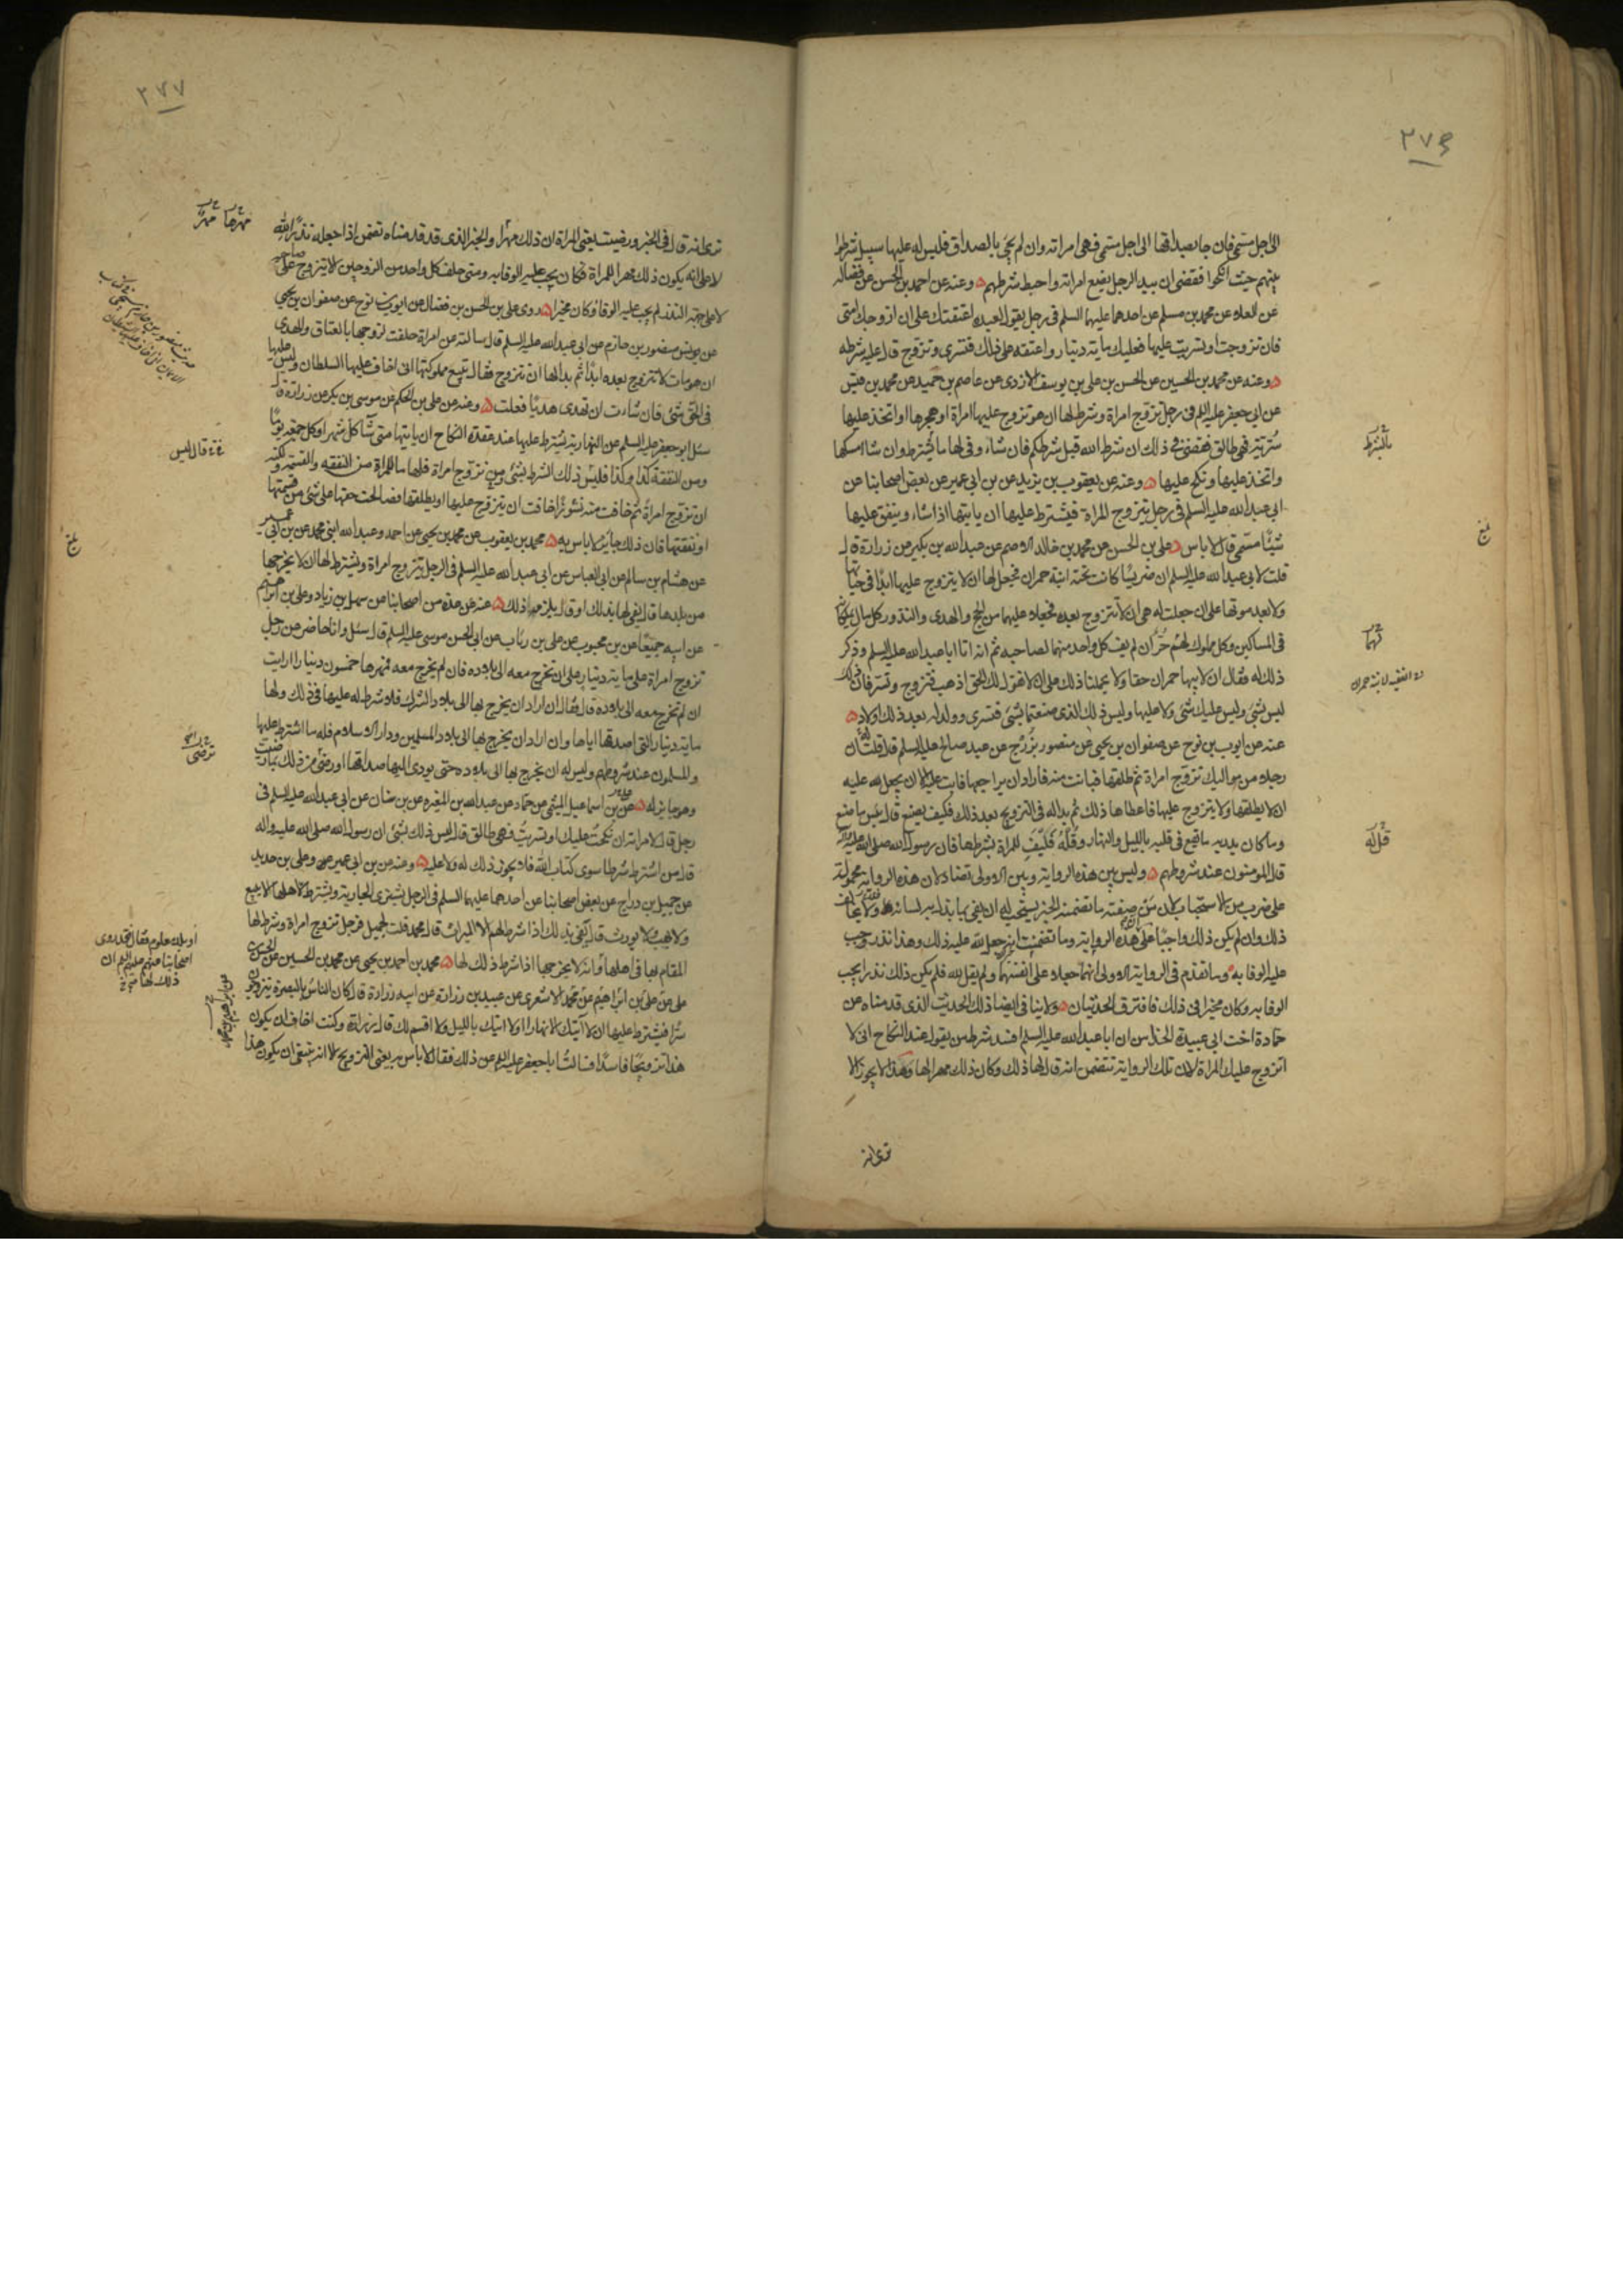 ٣٧٦
الى اجل مسمى فان جا بصداقها الى اجل مسمى فهى امراته وان لم يجئ بالصداق فليس له عليها سبيل شرطوا
بينهم حيث انكحوا فقضى ان بيد الرجل بضع امراته واحبط شرطهم وعنه عن احمد بن الحسن عن فضاله
عن العلاء عن محمد بن مسلم عن احدهما عليهما السلم فى رجل يقول لعبده اعتقتك على ان ازوجك ابنتى
فان تزوجت او تسريت عليها فعليك ماية دينار واعتقه على ذلك فتسرى وتزوج قال عليه شرطه
وعنه عن محمد بن الحسين عن الحسن بن على بن يوسف الازدى عن عاصم بن حميد عن محمد بن قيس
عن ابى جعفر عليه السلم فى رجل تزوج امراة وشرط لها ان هو تزوج عليها امراة او هجرها او اتخذ عليها
سرية فهى طالق فقضى فى ذلك ان شرط الله قبل شرطكم فان شاء وفى لها بما يشترط وان شا امسكها
واتخذ عليها ونكح عليها وعنه عن يعقوب بن يزيد عن بن ابى عمير عن بعض اصحابنا عن
ابى عبد الله عليه السلم فى رجل يتزوج المراة فيشترط عليها ان ياتيها اذا شاء وينفق عليها
شيئا مسمى قال لا باس على بن الحسن عن محمد بن خالد الاصم عن عبد الله بن بكير عن زرارة قال
قلت لابى عبد الله عليه السلم ان ضريسا كانت تحته ابنة حمران فجعل لها ان لا يتزوج عليها ابدا فى حياتها
ولا بعد موتها على ان جعلت له هى ان لا تتزوج بعده فجعلا عليهما من الحج والهدى والنذور وكل مال يملكانه
فى المساكين وكل مملوك لهم حر ان لم يف كل واحد منهما لصاحبه ثم انه اتا ابا عبد الله عليه السلم وذكر
ذلك له فقال ان لابيها حمران حقا ولا يحملنا ذلك على ان لا نقول لك الحق اذهب فتزوج وتسر فان ذلك
ليس بشئ وليس عليك شئ ولا عليها وليس ذلك الذى صنعتما بشئ فتسرى وولد له بعد ذلك اولاد
عنه عن ايوب بن نوح عن صفوان بن يحيى عن منصور بزرج عن عبد صالح عليه السلم قال قلت له ان
رجلا من مواليك تزوج امراة ثم طلقها فبانت منه فاراد ان يراجعها فابت عليه الا ان يجعل لله عليه
ان لا يطلقها ولا يتزوج عليها فاعطاها ذلك ثم بدا له فى التزويج بعد ذلك فكيف يصنع قال بئس ما صنع
وما كان يدريه ما يقع فى قلبه بالليل والنهار وقل له فليف للمراة بشرطها فان رسول الله صلى الله عليه واله
قال المومنون عند شروطهم وليس بين هذه الرواية وبين الاولى تضاد لان هذه الرواية محمولة
على ضرب من الاستحباب لان من صفته ما تضمنه الخبر يستحب له ان يفى بما بذل به لسانه
ذلك وان لم يكن ذلك واجبا على ان هذه الرواية وما تضمنت انه جعل لله عليه ذلك وهذا نذر وجب
عليه الوفا به وما تقدم فى الرواية الاولى انهما جعلاه على انفسهما ولم يقل لله فلم يكن ذلك نذرا يجب
الوفا به وكان مخيرا فى ذلك فافترق الحديثان ولا ينافى ايضا ذلك الحديث الذى قدمناه عن
حمادة اخت ابى عبيدة الحذاء من ان ابا عبد الله عليه السلم افسد شرط من يقول عند النكاح انى لا
اتزوج عليك المراة لان تلك الرواية تتضمن انه قال لها ذلك وكان ذلك مهرا لها وهذا لا يجوز الا
ترى انه
بالشرط
بلغ
٣٧٧
ترى انه قال فى الخبر ورضيت يعنى المراة ان ذلك مهرا والخبر الذى قد قدمناه تضمن اذا جعله نذرا لله
لا على انه يكون ذلك مهرا للمراة فكان يجب عليه الوفا به ومتى حلف كل واحد من الزوجين لا يتزوج على صاحبه
لا على جهة النذر لم يجب عليه الوفا وكان مخيرا روى على بن الحسن بن فضال عن ايوب بن نوح عن صفوان بن يحيى
عن يونس منصور بن حازم عن ابى عبد الله عليه السلم قال سالته عن امراة حلفت لزوجها بالعتاق والهدى
ان هو مات لا تتزوج بعده ابدا ثم بدا لها ان تتزوج فقال تبيع مملوكتها انى اخاف عليها السلطان وليس عليها
فى الحق شئ فان شاءت ان تهدى هديا فعلت وعنه عن على بن الحكم عن موسى بن بكر عن زرارة قال
سئل ابو جعفر عليه السلم عن النهارية يشترط عليها عند عقدة النكاح ان ياتيها متى شآ كل شهر او كل جمعة يوما
ومن النفقة كذا وكذا فليس ذلك الشرط بشئ ومن تزوج امراة فلها ما للمراة من النفقة والقسمة ولكنه
ان تزوج امراة ثم خافت منه نشوزا خافت ان يتزوج عليها او يطلقها فصالحت حقها على شئ من قسمتها
او نفقتها فان ذلك جايز لا باس به محمد بن يعقوب عن محمد بن يحيى عن احمد وعبد الله ابنى محمد عن بن ابى عمير
عن هشام بن سالم عن ابى العباس عن ابى عبد الله عليه السلم فى الرجل يتزوج امراة ويشترط لها ان لا يخرجها
من بلدها قال يفى لها بذلك او قال يلزمه ذلك عنه عن عدة من اصحابنا عن سهل بن زياد وعلى بن ابرهيم
عن ابيه جميعا عن بن محبوب عن على بن رئاب عن ابى الحسن موسى عليه السلم قال سئل وانا حاضر عن رجل
تزوج امراة على ماية دينار على ان تخرج معه الى بلاده فان لم تخرج معه فمهرها خمسون دينارا ارايت
ان لم تخرج معه الى بلاده قال فقال ان اراد ان يخرج بها الى بلاد الشرك فلا شرط له عليها فى ذلك ولها
ماية دينار التى اصدقها اياها وان اراد ان يخرج بها الى بلاد المسلمين ودار الاسلام فله ما اشترط عليها
والمسلمون عند شروطهم وليس له ان يخرج بها الى بلاده حتى يودى اليها صداقها او رضى من ذلك بما رضيت
وهو جايز له عن بن اسماعيل الميثمى عن حماد عن عبد الله بن المغيره عن بن سنان عن ابى عبد الله عليه السلم فى
رجل قال لامراته ان نكحت عليك او تسريت فهى طالق قال ليس ذلك بشئ ان رسول الله صلى الله عليه واله
قال من اشترط شرطا سوى كتاب الله فلا يجوز ذلك له ولا عليه وعنه عن بن ابى عمير وعلى بن حديد
عن جميل بن دراج عن بعض اصحابنا عن احدهما عليهما السلم فى الرجل يشترى الجارية ويشترط لاهلها لا يبيع
ولا يهب ولا يورث قال يفى بذلك اذا شرط لهم الا الميراث قال محمد قلت لجميل فرجل تزوج امراة وشرط لها
المقام بها فى اهلها وانه لا يخرجها اذا شرط ذلك لها محمد بن احمد بن يحيى عن محمد بن الحسين عن الحسن بن
على عن على بن ابراهيم عن محمد الاشعرى عن عبيد بن زرارة عن ابيه زرارة قال كان الناس بالبصرة يتزوجون
سرا فيشترط عليها ان لا آتيك الا نهارا ولا اتيك بالليل ولا اقسم لك قال زرارة وكنت اخاف ان يكون
هذا تزويجا فاسدا فسالت ابا جعفر عليه السلم عن ذلك فقال لا باس به يعنى التزويج الا انه ينبغى ان يكون هذا
مهرها مهر
قال ليس
بلغ
او بلد معلوم فقال قد روى
اصحابنا عنهم عليهم السلم ان
ذلك لها